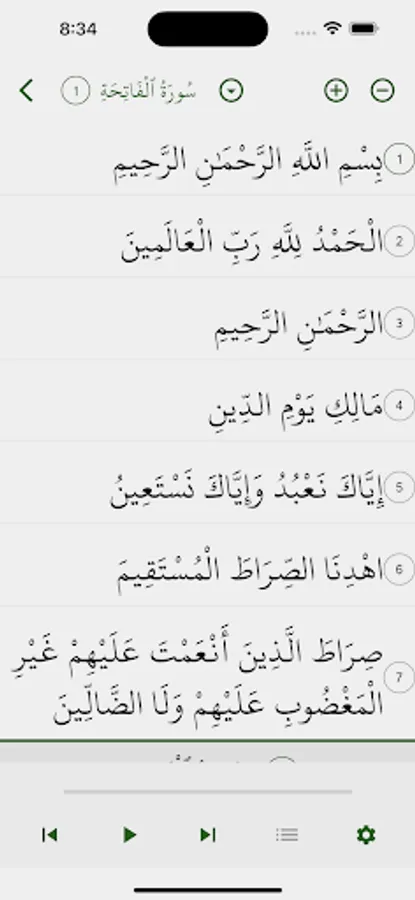 8:34
سُورَةُ ٱلْفَاتِحَةِ 1
1 بِسْمِ اللَّهِ الرَّحْمَٰنِ الرَّحِيمِ
2 الْحَمْدُ لِلَّهِ رَبِّ الْعَالَمِينَ
3 الرَّحْمَٰنِ الرَّحِيمِ
4 مَالِكِ يَوْمِ الدِّينِ
5 إِيَّاكَ نَعْبُدُ وَإِيَّاكَ نَسْتَعِينُ
6 اهْدِنَا الصِّرَاطَ الْمُسْتَقِيمَ
7 صِرَاطَ الَّذِينَ أَنْعَمْتَ عَلَيْهِمْ غَيْرِ
الْمَغْضُوبِ عَلَيْهِمْ وَلَا الضَّالِّينَ